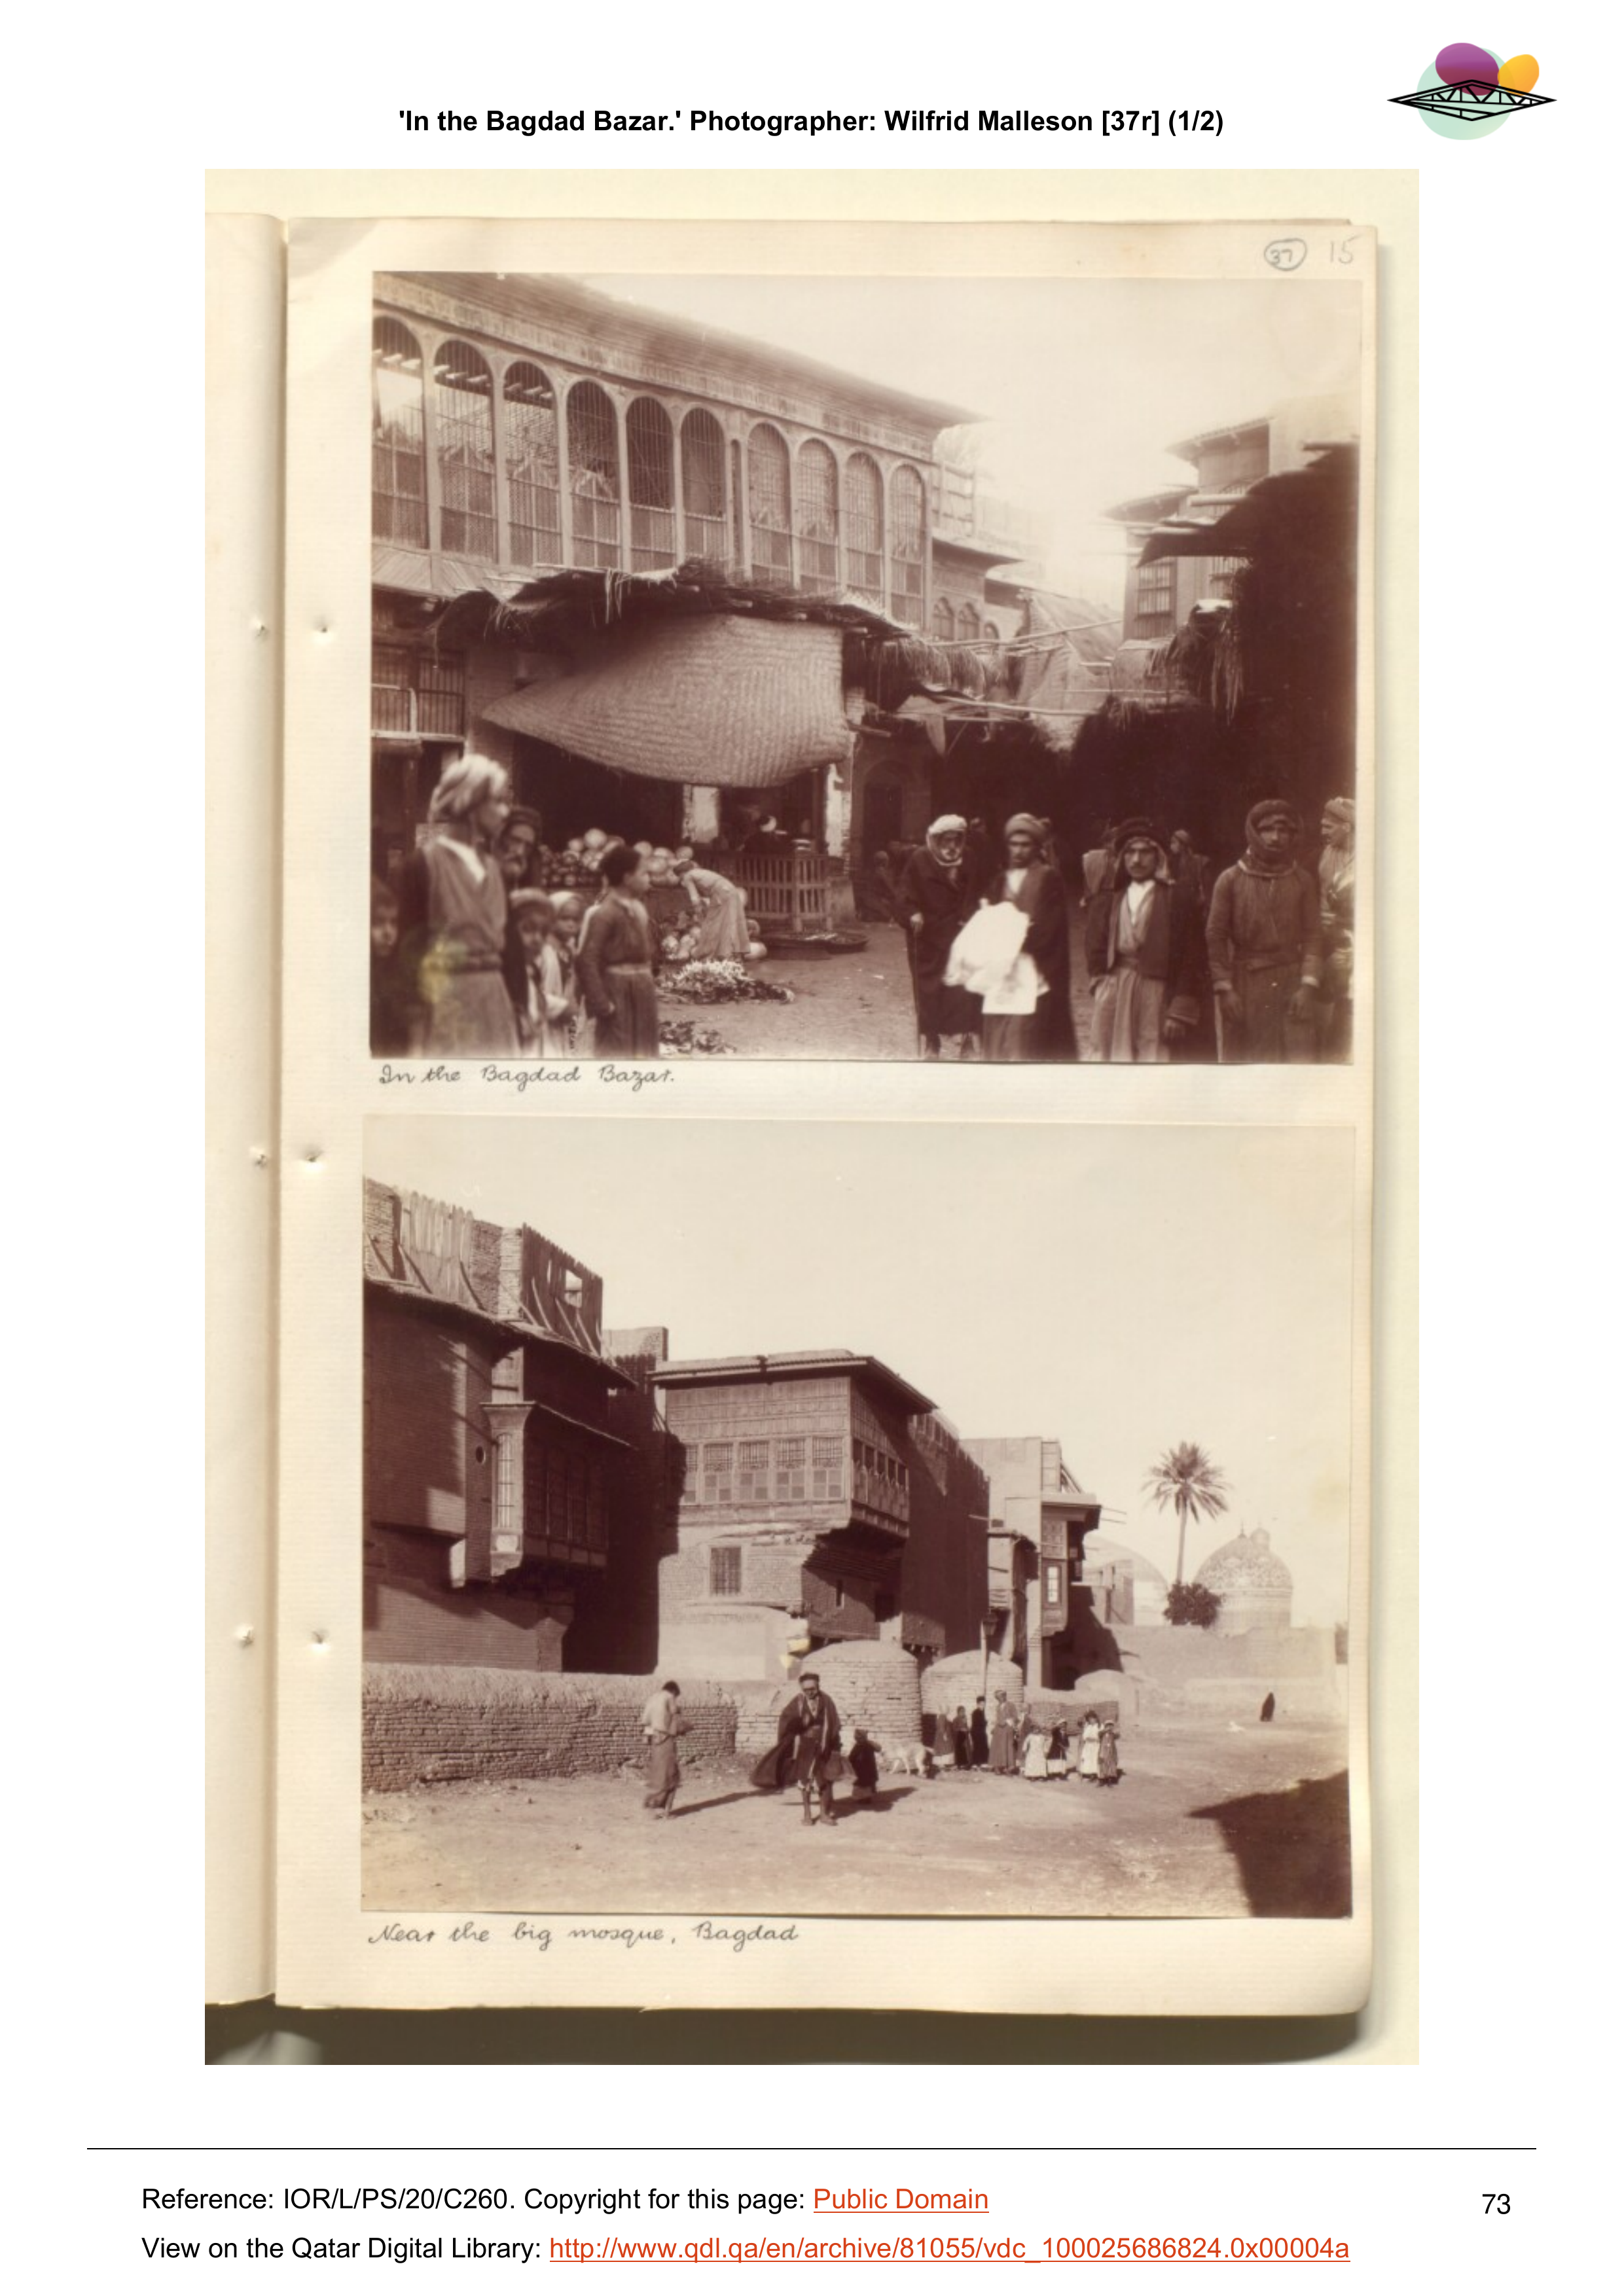 'In the Bagdad Bazar.' Photographer: Wilfrid Malleson [37r] (1/2)
37 15
In the Bagdad Bazar.
Near the big mosque, Bagdad
Reference: IOR/L/PS/20/C260. Copyright for this page: Public Domain
73
View on the Qatar Digital Library: http://www.qdl.qa/en/archive/81055/vdc_100025686824.0x00004a